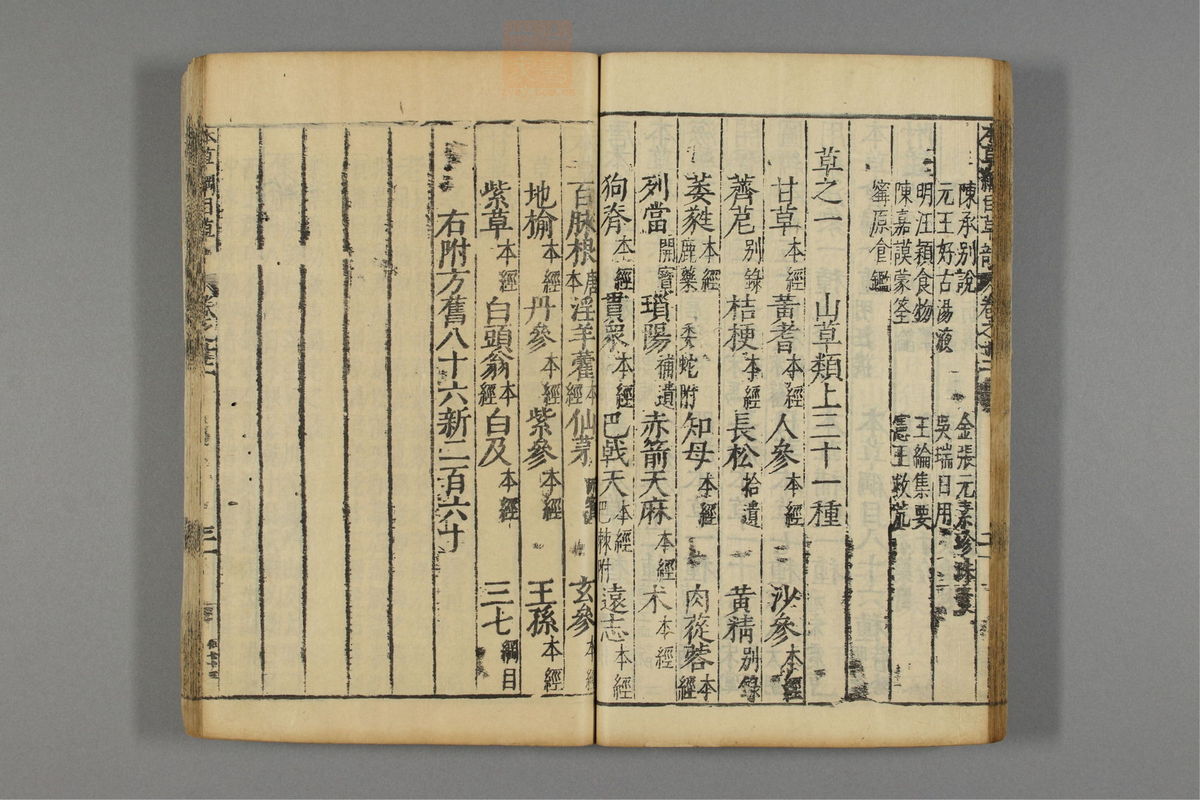 陳承別說　金張元素珍珠囊
元王好古湯液　吳瑞日用
明汪穎食物　王綸集要
陳嘉謨蒙筌　憲王救荒
甯原食鑑
草之一　山草類上三十一種
甘草本經　黃耆本經　人參本經　沙參本經
薺苨別錄　桔梗本經　長松拾遺　黃精別錄
萎蕤本經 鹿藥 委蛇附　知母本經　肉蓯蓉本經
列當開寶　瑣陽補遺　赤箭天麻本經　朮本經
狗脊本經　貫衆本經　巴戟天本經 巴棘附　遠志本經
百脉根唐本　淫羊藿本經　仙茅開寶　玄參本經
地榆本經　丹參本經　紫參本經　王孫本經
紫草本經　白頭翁本經　白及本經　三七綱目
右附方舊八十六新二百六十
本草綱目草